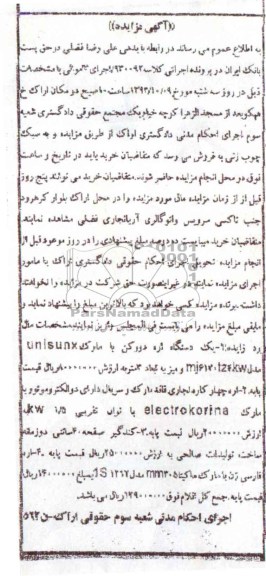 ((آگهی مزایده))
به اطلاع عموم می رساند در رابطه با بدهی علی رضا فضلی درحق پست
بانک ایران در پرونده اجرائی کلاسه ۹۳۰۰۹۳/اجرای ۳اموالی با مشخصات
ذیل در روز سه شنبه مورخ ۱۳۹۳/۱۰/۰۹ ساعت ۱۰صبح در مکان اراک خ
هپکو بعد از مسجد الزهرا کوچه خیام یک مجتمع حقوقی دادگستری شعبه
سوم اجرای احکام مدنی دادگستری اراک از طریق مزایده و به سبک
چوب زنی به فروش می رسد که متقاضیان خرید باید در تاریخ و ساعت
فوق در محل انجام مزایده حاضر شوند. متقاضیان خرید می توانند پنج روز
قبل از از زمان مزایده مال مورد مزایده را در محل اراک بلوار کرهرود
جنب تاکسی سرویس واتوگالری آذربایجانی فضلی مشاهده نمایند.
متقاضیان خرید میبایست ده درصد مبلغ پیشنهادی را در روز موعود قبل از
انجام مزایده تحویل اجرای احکام حقوقی دادگستری اراک یا مامور
اجرای مزایده نمایند در غیر اینصورت حق شرکت در مزایده را نخواهند
داشت. برنده مزایده کسی خواهد بود که بالاترین مبلغ را پیشنهاد نماید و
مابقی مبلغ مزایده را می بایست فی المجلس واریز نمایند. مشخصات مال
مورد مزایده: ۱-یک دستگاه اره دورکن با مارک unisunx
ریال قیمت
پایه ۲-اره چهارکاره نجاری فاقد مارک و سریال دارای دوالکتروموتور با
مارک electrokorina با توان تقریبی ۱/۵ kw.
ارزش ۲۰۰۰۰۰۰۰ریال قیمت پایه ۳-کندگیر صفحه ۴۰سانتی دوزمانه
ساخت تولیدات صالحی به ارزش ۲۵۰۰۰۰۰۰ریال قیمت پایه ۴-اره
قیمت پایه. جمع کل اقلام فوق ۱۲۹۰۰۰۰۰۰ریال می باشد.
اجرای احکام مدنی شعبه سوم حقوقی اراک-ن ۵۶۲
ParsNamadData